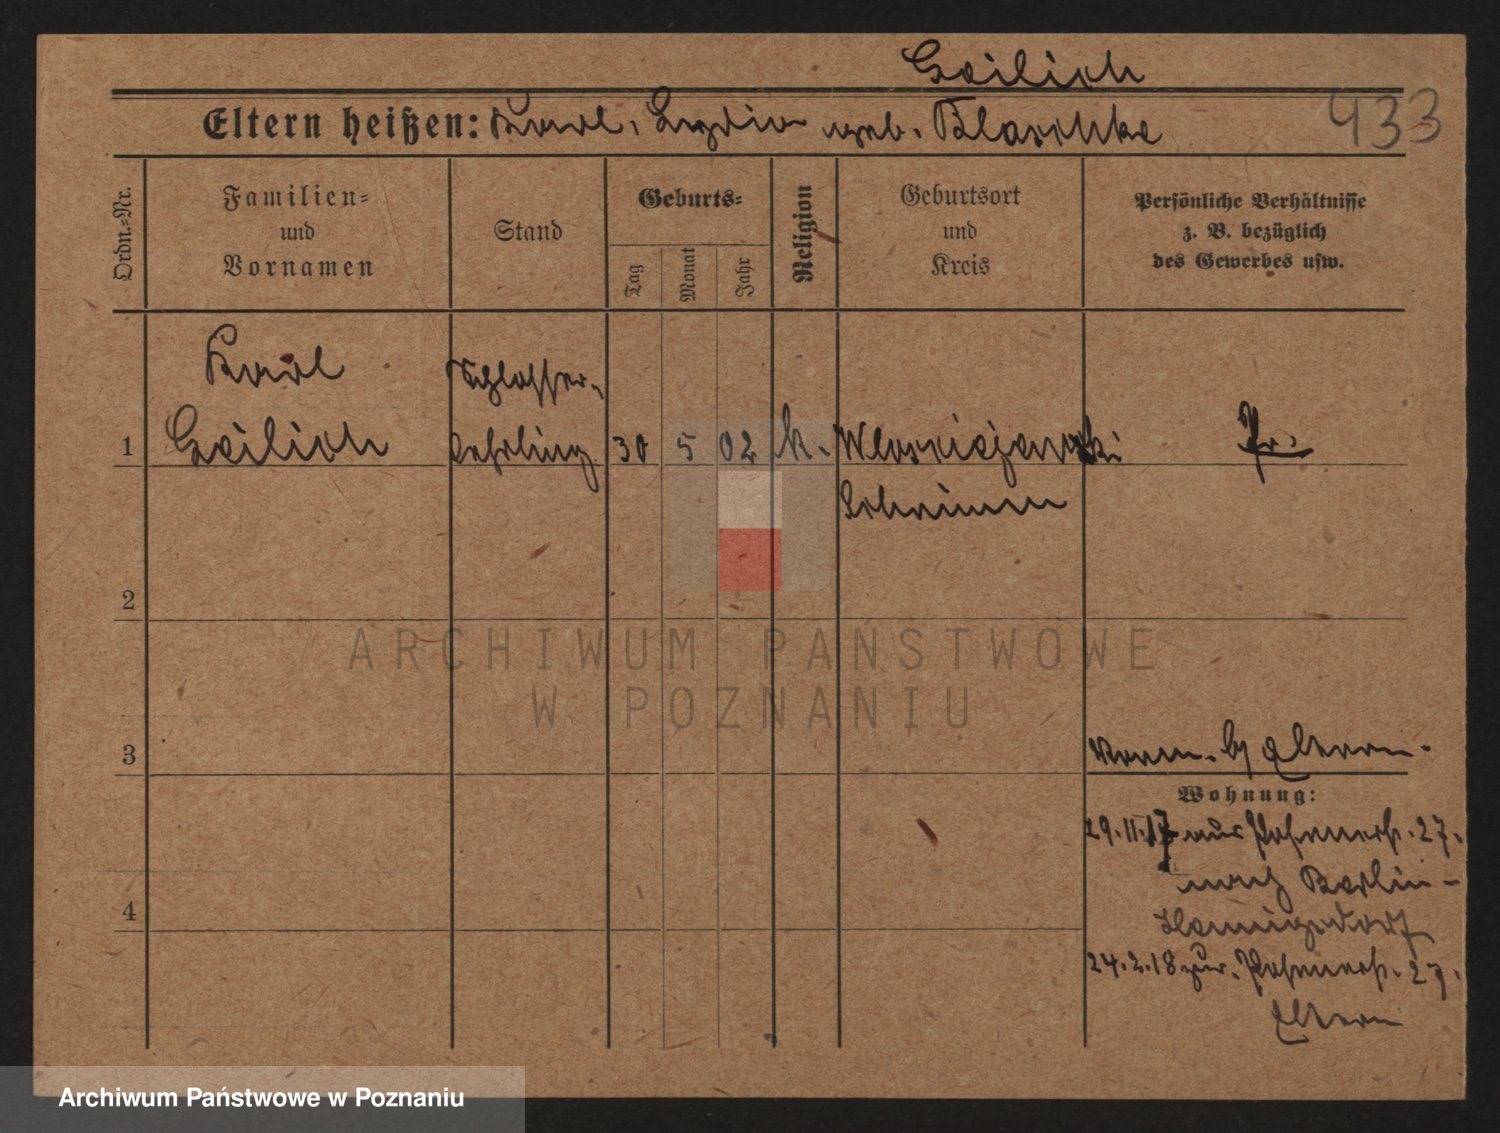 Geilich
Eltern heißen: Karl, Lydia geb. Blaschke
433
Ordn.-Nr.
Familien- und Vornamen
Stand
Geburts-
Tag
Monat
Jahr
Religion
Geburtsort und Kreis
Persönliche Verhältnisse z. B. bezüglich des Gewerbes usw.
Karl
Schlosser-
1 Geilich Lehrling 30 5 02 k. Pr.
Schrimm
2
ARCHIWUM PAŃSTWOWE
W POZNANIU
3 Eltern.
Wohnung:
29.11.17 aus 27.
nach Berlin-
4 Hennigsdorf
24.2.18 zur. 27.
Eltern
Archiwum Państwowe w Poznaniu